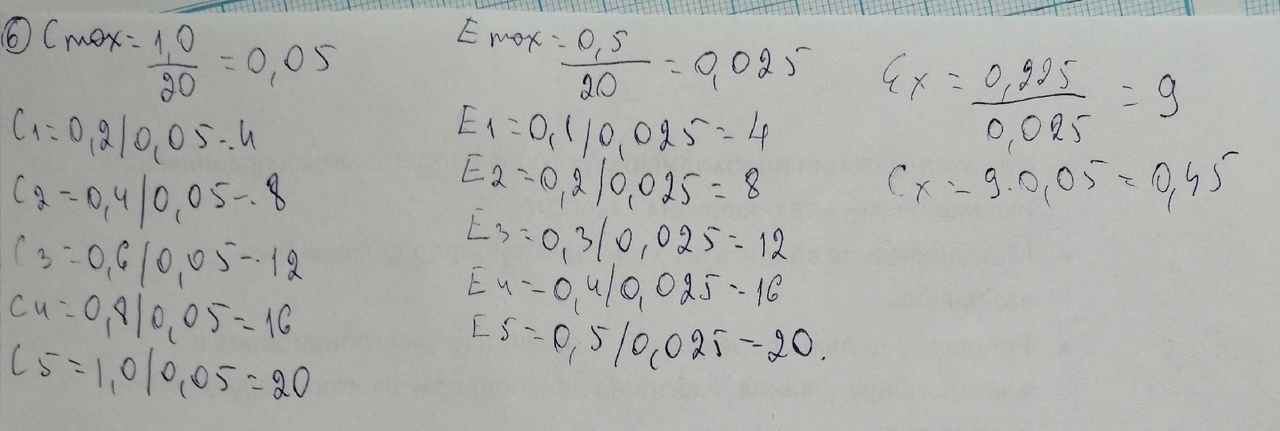 ⑥ Cmax = 1,0/20 = 0,05
C1 = 0,2/0,05 = 4
C2 = 0,4/0,05 = 8
C3 = 0,6/0,05 = 12
C4 = 0,8/0,05 = 16
C5 = 1,0/0,05 = 20
Emax = 0,5/20 = 0,025
E1 = 0,1/0,025 = 4
E2 = 0,2/0,025 = 8
E3 = 0,3/0,025 = 12
E4 = 0,4/0,025 = 16
E5 = 0,5/0,025 = 20.
Ex = 0,225/0,025 = 9
Cx = 9·0,05 = 0,45